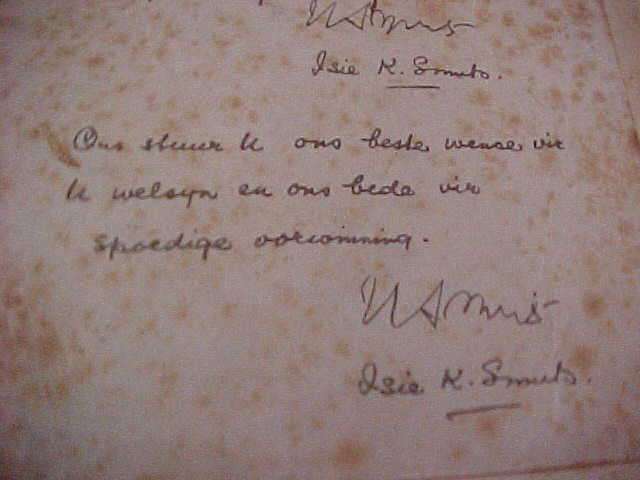 JSmuts
Isie K. Smuts.
Ons stuur U ons beste wense vir
U welsyn en ons bede vir
spoedige oorwinning.
JSmuts
Isie K. Smuts.